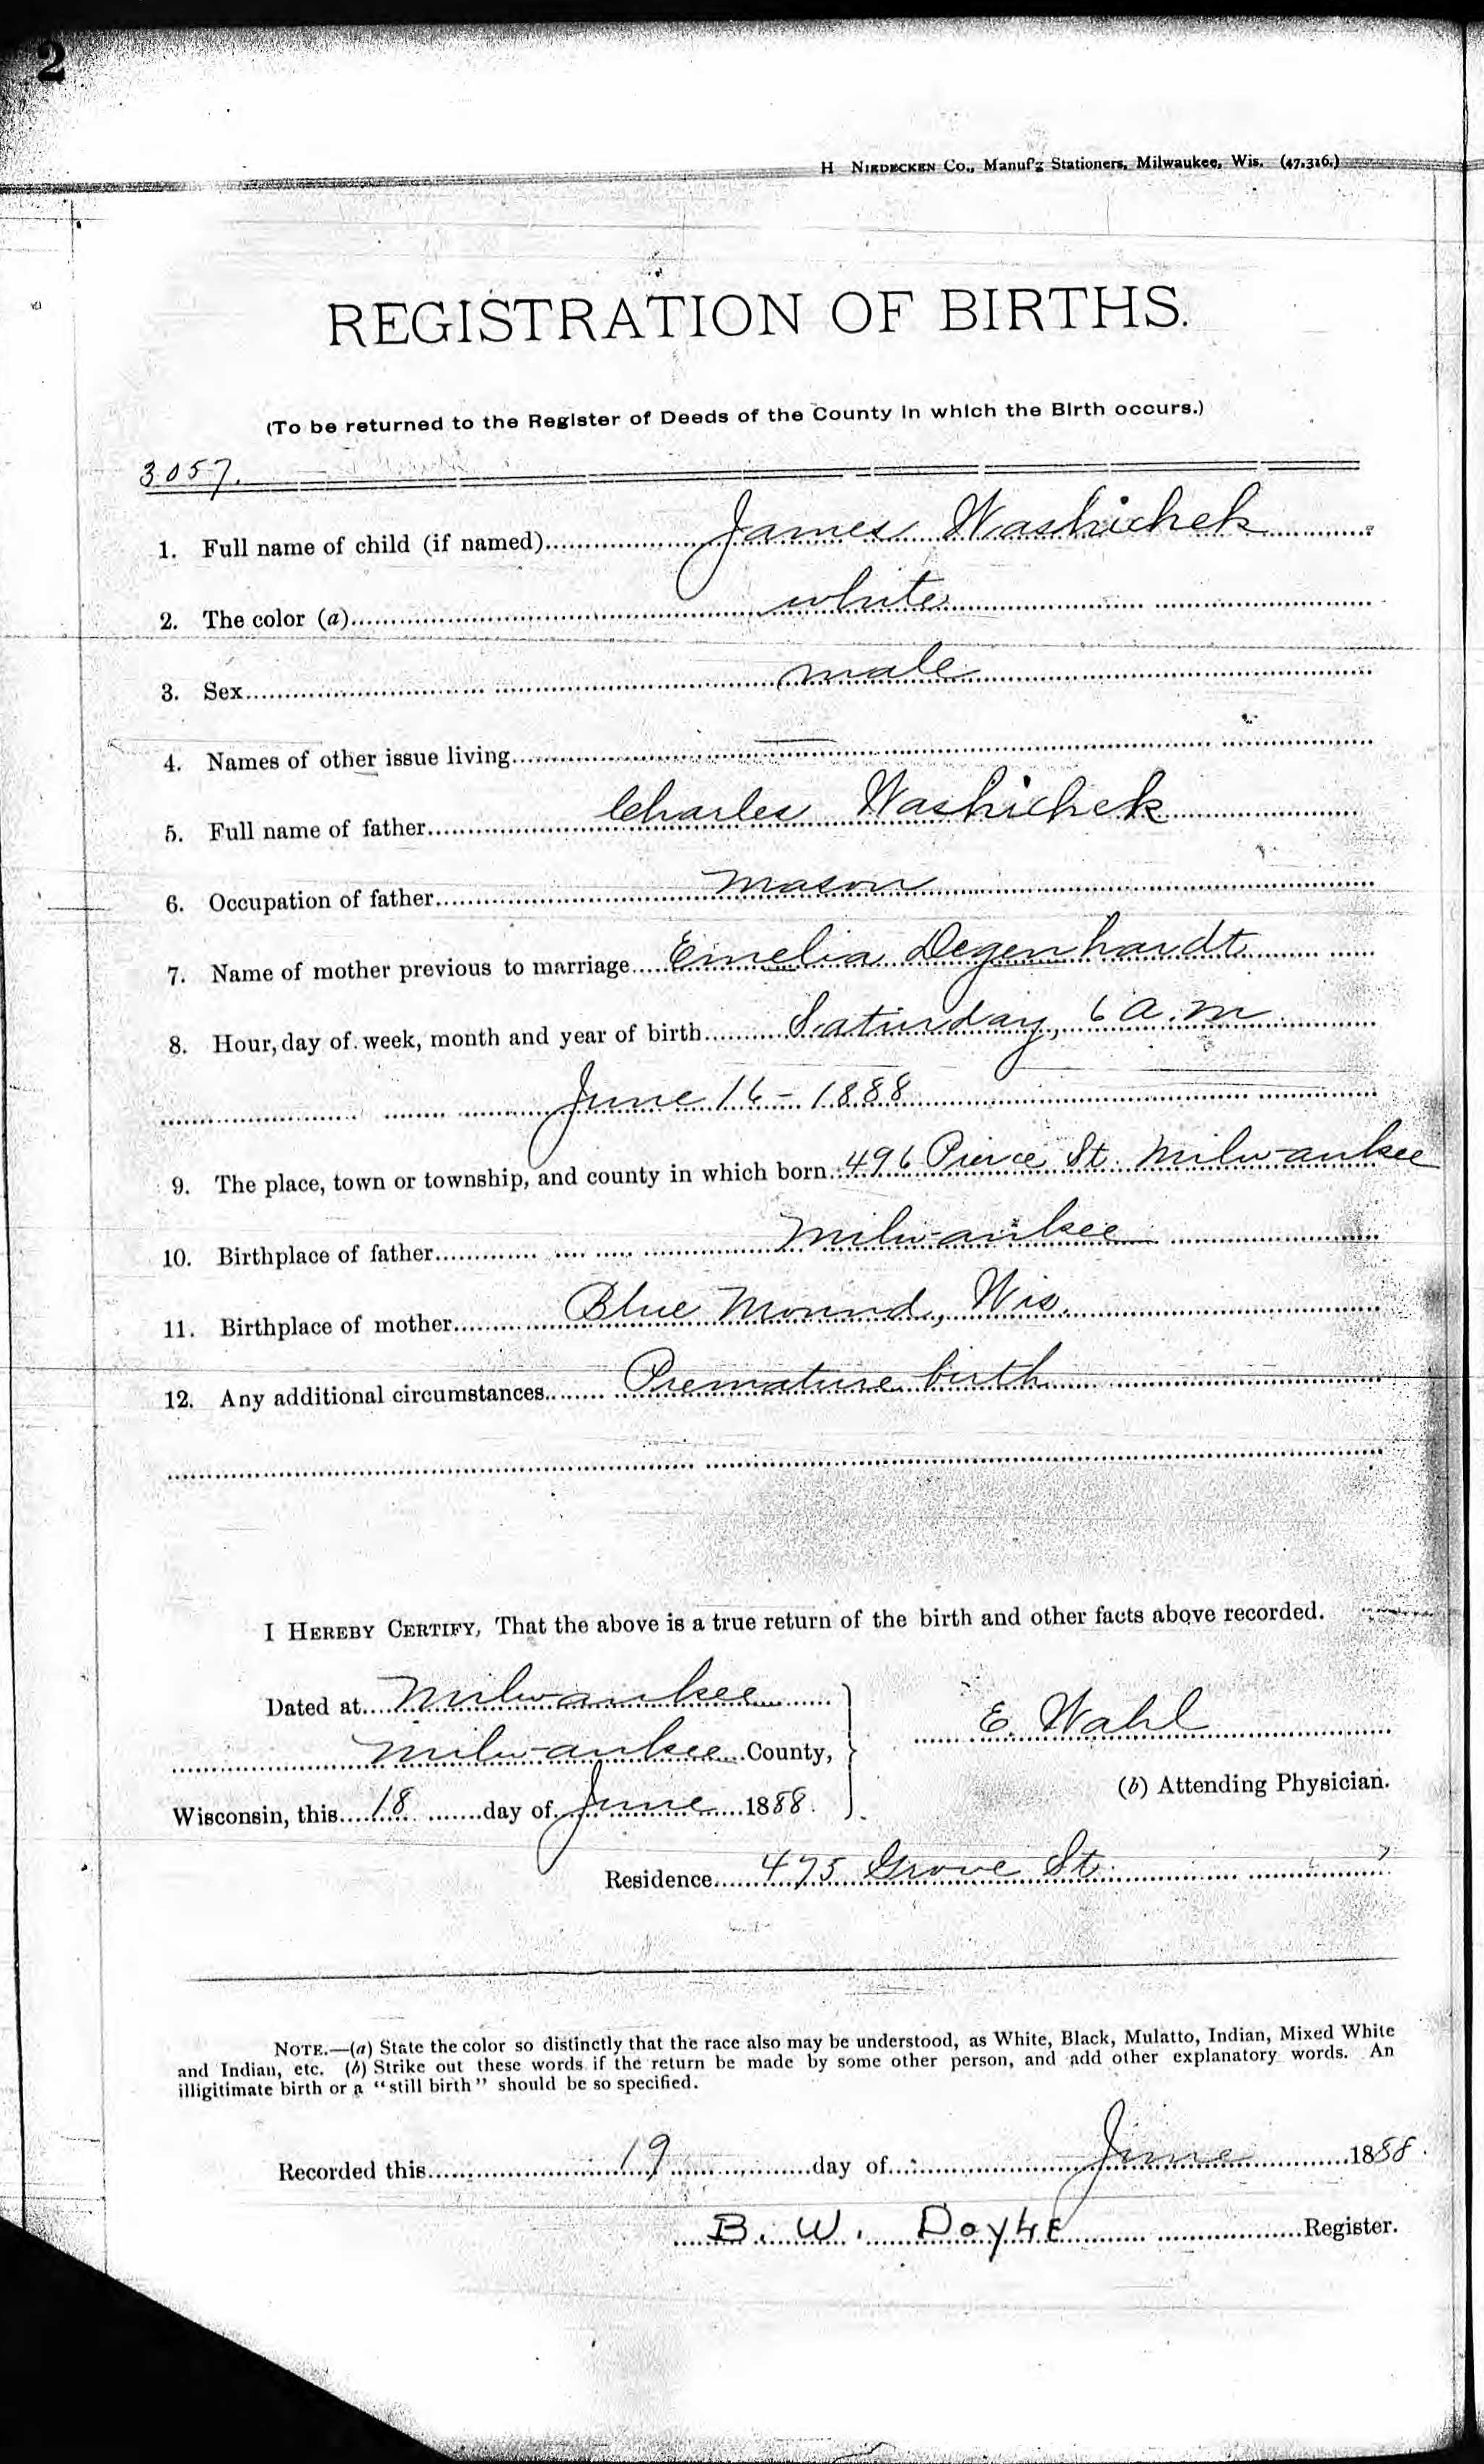 2
H NIEDECKEN Co., Manuf'g Stationers, Milwaukee, Wis. (47.316.)
REGISTRATION OF BIRTHS.
(To be returned to the Register of Deeds of the County in which the Birth occurs.)
3057.
1. Full name of child (if named) James Washichek
2. The color (a) white
3. Sex male
4. Names of other issue living —
5. Full name of father Charles Washichek
6. Occupation of father mason
7. Name of mother previous to marriage Emelia Degenhardt
8. Hour, day of week, month and year of birth Saturday, 6 a.m.
June 16 - 1888
9. The place, town or township, and county in which born 496 Pierce St. Milwaukee
10. Birthplace of father Milwaukee
11. Birthplace of mother Blue Mound, Wis.
12. Any additional circumstances Premature birth
I HEREBY CERTIFY, That the above is a true return of the birth and other facts above recorded.
Dated at Milwaukee
Milwaukee County,
E. Wahl
(b) Attending Physician.
Wisconsin, this 18 day of June 1888.
Residence 475 Grove St.
NOTE.—(a) State the color so distinctly that the race also may be understood, as White, Black, Mulatto, Indian, Mixed White
and Indian, etc. (b) Strike out these words if the return be made by some other person, and add other explanatory words. An
illigitimate birth or a "still birth" should be so specified.
Recorded this 19 day of June 1888.
B. W. Doyle Register.